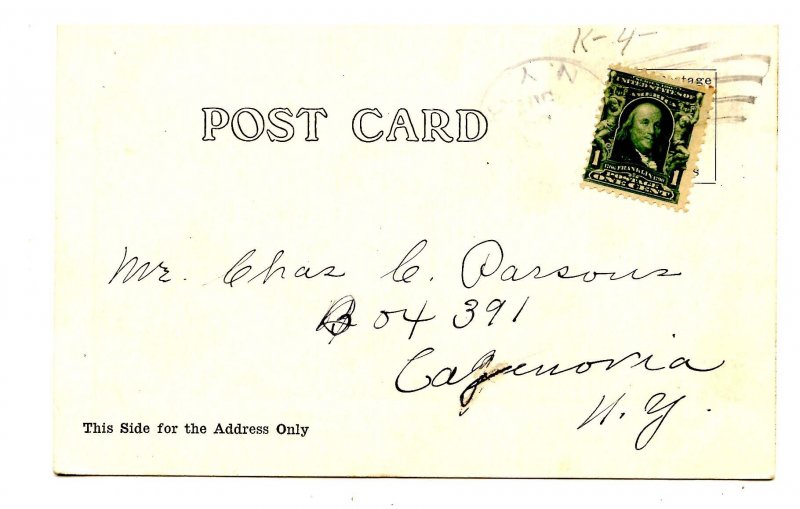 K-4-
N.Y.
Postage
UNITED STATES OF
AMERICA
POST CARD
1 1706 FRANKLIN 1790 1
POSTAGE
ONE CENT
Mr. Chas C. Parsons
Box 391
Cazenovia
N.Y.
This Side for the Address Only